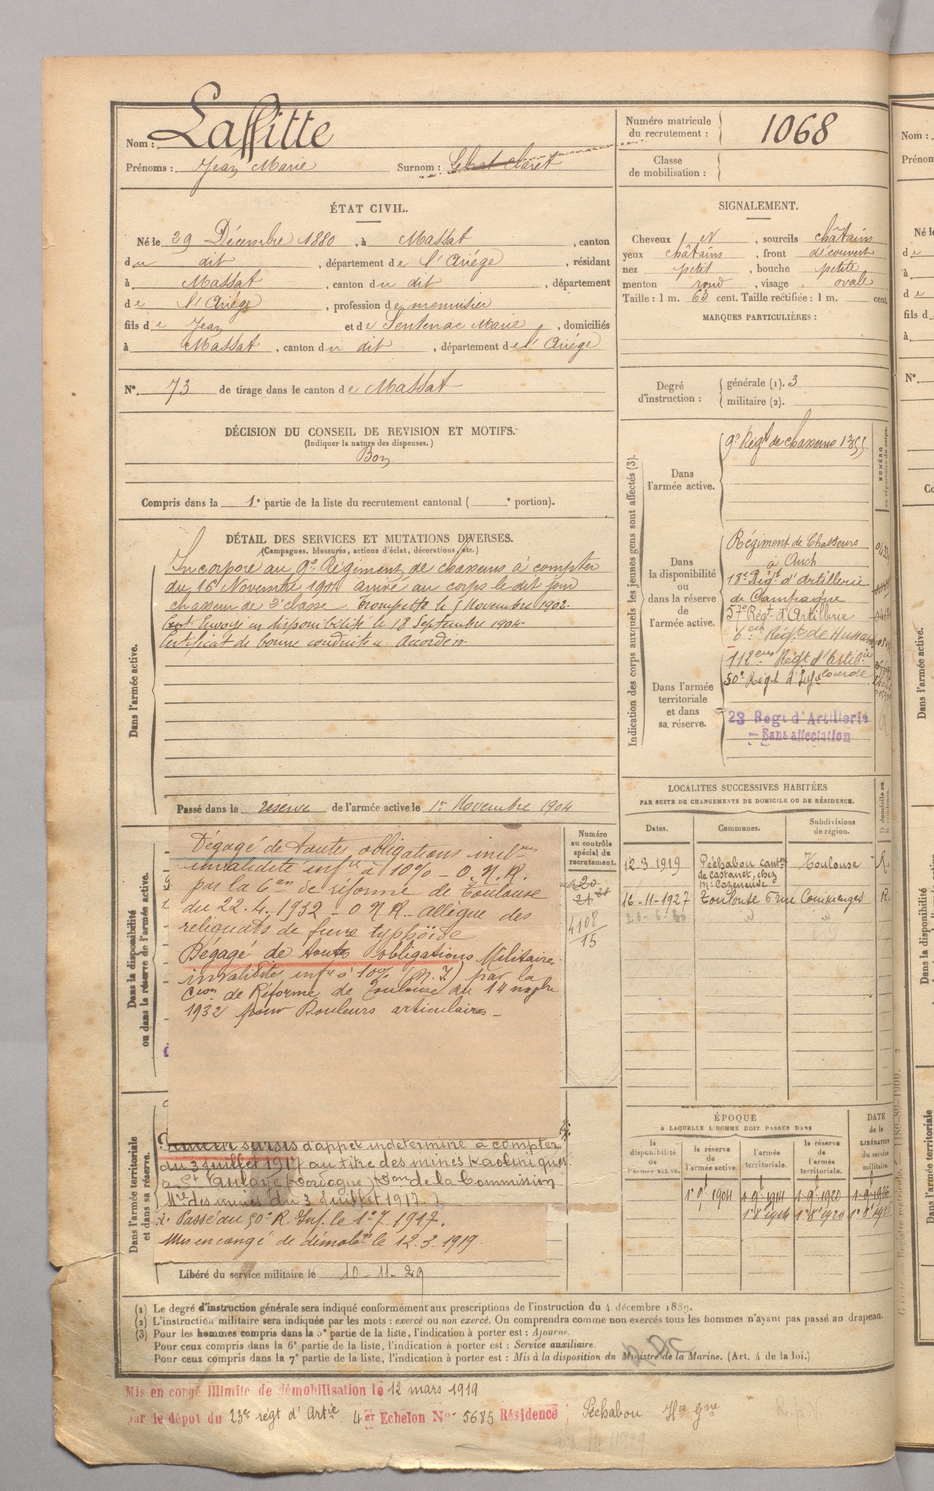 Nom : Laffitte
Prénoms : Jean Marie Surnom :
Numéro matricule du recrutement : 1068
Classe de mobilisation :
ÉTAT CIVIL.
Né le 29 Décembre 1880, à Massat, canton
du dit, département de l'Ariége, résidant
à Massat, canton du dit, département
de l'Ariége, profession de menuisier
fils de Jean et de Sentenac Marie, domiciliés
à Massat, canton du dit, département de l'Ariége
N° 73 de tirage dans le canton de Massat
DÉCISION DU CONSEIL DE REVISION ET MOTIFS.
(Indiquer la nature des dispenses.)
Bon
Compris dans la 1e partie de la liste du recrutement cantonal ( e portion).
SIGNALEMENT.
Cheveux et, sourcils châtains
yeux châtains, front découvert
nez petit, bouche petite
menton rond, visage ovale
Taille : 1 m. 63 cent. Taille rectifiée : 1 m. cent.
MARQUES PARTICULIÈRES :
Degré d'instruction : générale (1). 3
militaire (2).
DÉTAIL DES SERVICES ET MUTATIONS DIVERSES.
(Campagnes, blessures, actions d'éclat, décorations, etc.)
Dans l'armée active.
Incorporé au 9e Régiment de chasseurs à compter
du 16 Novembre 1901 arrivé au corps le dit jour
chasseur de 2e classe. Trompette le Novembre 1902.
Envoyé en disponibilité le 18 Septembre 1904
Certificat de bonne conduite accordé
Passé dans la réserve de l'armée active le 1er Novembre 1904
Indication des corps auxquels les jeunes gens sont affectés (3).
Dans l'armée active.
9e Régt de chasseurs
Dans la disponibilité ou dans la réserve de l'armée active.
Régiment de Chasseurs
à Auch
18e Régt d'Artillerie
de Campagne
57e Régt d'Artillerie
6eme Régt de Hussards
Dans l'armée territoriale et dans sa réserve.
112eme Régt d'Artillerie lourde
50e Régt d'Infie
23 Régt d'Artillerie
Sans affectation
LOCALITES SUCCESSIVES HABITÉES
PAR SUITE DE CHANGEMENTS DE DOMICILE OU DE RÉSIDENCE.
Dates. Communes. Subdivisions de région.
12.3.1919 Péchabou cant. de Castanet, chez Toulouse R.
16-11-1927 Toulouse 6 rue Comminges R.
Dans la disponibilité ou dans la réserve de l'armée active.
Numéro au contrôle spécial du recrutement.
4108
15
Dégagé de toutes obligations milres
invalidité infre à 10% - O.N.R.
par la 6eme Con de réforme de Toulouse
du 22.4.1932 - O N R - allègue des
reliquats de fièvre typhoïde
Dégagé de toutes obligations Militaires
invalidité infre à 10% (M.I.) par la
Cion de Réforme de Toulouse du 14 novbre
1932 pour Douleurs articulaires -
Dans l'armée territoriale et dans sa réserve.
sursis d'appel indéterminé à compter
du 3 juillet 1917 au titre des mines Kaoliniques
de la Commission
des mines du 3 Juillet 1917.
Passé au 50e R. Inf. le 1.7.1917.
Mis en congé de démobon le 12.3.1919.
Libéré du service militaire le 10-11-29
ÉPOQUE
A LAQUELLE L'HOMME DOIT PASSER DANS
la disponibilité de l'armée active. la réserve de l'armée active. l'armée territoriale. la réserve de l'armée territoriale.
DATE DE LA LIBÉRATION du service militaire.
1e 9bre 1904 1e 9bre 1914 1-9bre 1920
1e 8bre 1914 1e 8bre 1920
(1) Le degré d'instruction générale sera indiqué conformément aux prescriptions de l'instruction du 4 décembre 1889.
(2) L'instruction militaire sera indiquée par les mots : exercé ou non exercé. On comprendra comme non exercés tous les hommes n'ayant pas passé au drapeau.
(3) Pour les hommes compris dans la 5e partie de la liste, l'indication à porter est : Ajourné.
Pour ceux compris dans la 6e partie de la liste, l'indication à porter est : Service auxiliaire.
Pour ceux compris dans la 7e partie de la liste, l'indication à porter est : Mis à la disposition du Ministre de la Marine. (Art. 4 de la loi.)
Mis en congé illimité de démobilisation le 12 mars 1919
par le dépôt du 23e régt d'Artie 4er Echelon No 5685 Résidence Péchabou Hte Gne